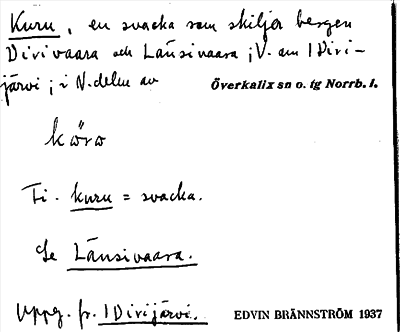 Kuru, en svacka som skiljer bergen
Dirivaara och Länsivaara; V. om 1 Diri-
järvi; i N. delen av Överkalix sn o. tg Norrb. l.
körо
Fi. kuru = svacka.
Se Länsivaara.
Uppg. fr. 1 Dirijärvi.
EDVIN BRÄNNSTRÖM 1937